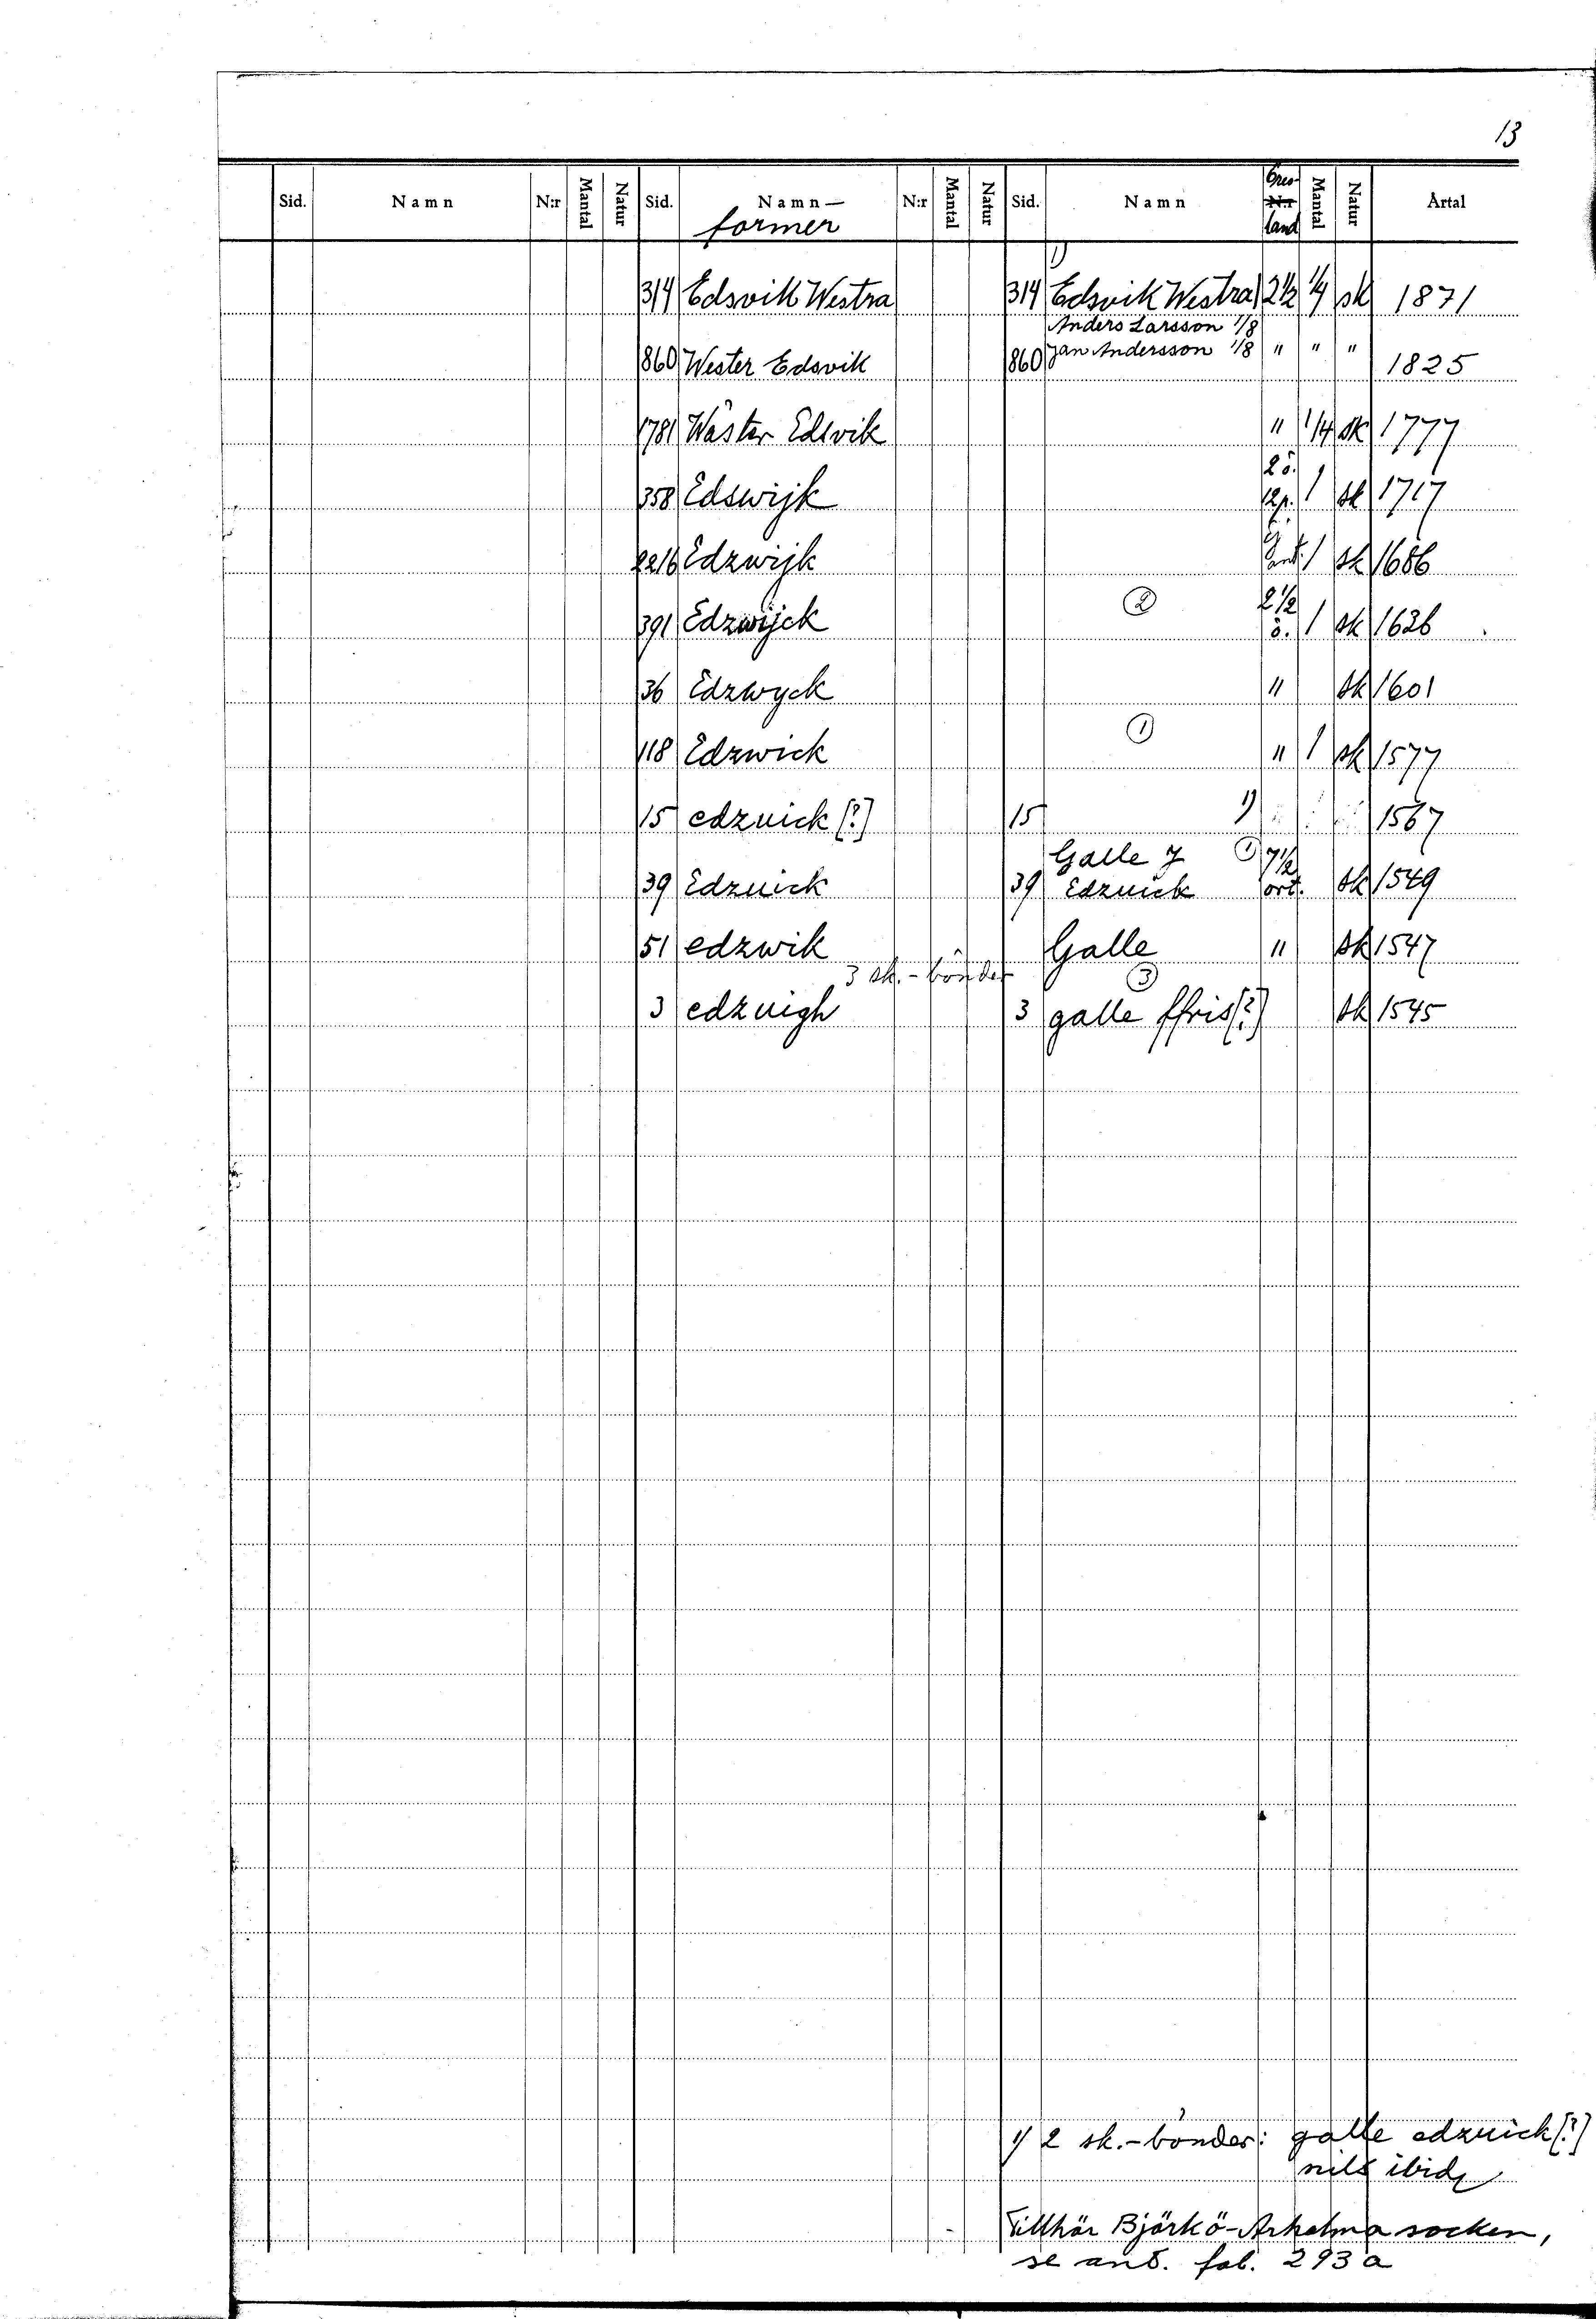 13
Sid. Namn N:r Mantal Natur Sid. Namn— N:r Mantal Natur Sid. Namn Öres- N:r Mantal Natur Årtal
former land
1)
314 Edsvik Westra 314 Edsvik Westra 2½ ¼ sk 1871
Anders Larsson 1/8
860 Wester Edsvik 860 Jan Andersson 1/8 " " " 1825
1781 Wäster Edsvik " 1/4 sk 1777
2 ö.
358 Edswijk 12p. 1 sk 1717
2216 Edzwijk 1 sk 1686
② 2½
391 Edzwijck ö. 1 sk 1626
36 Edzwyck " sk 1601
①
118 Edzwick " 1 sk 1577
15 edzuick [?] 15 1) 1567
Galle J ① 7½
39 Edzuick 39 Edzuick ört. sk 1549
51 edzwik Galle " sk 1547
3 sk.-bönder ③
3 edzuigh 3 galle ffris[?] sk 1545
1) 2 sk.-bönder: galle edzuick [?]
nils ibid
Tillhör Björkö-Arholma socken,
se ant. fol. 293 a